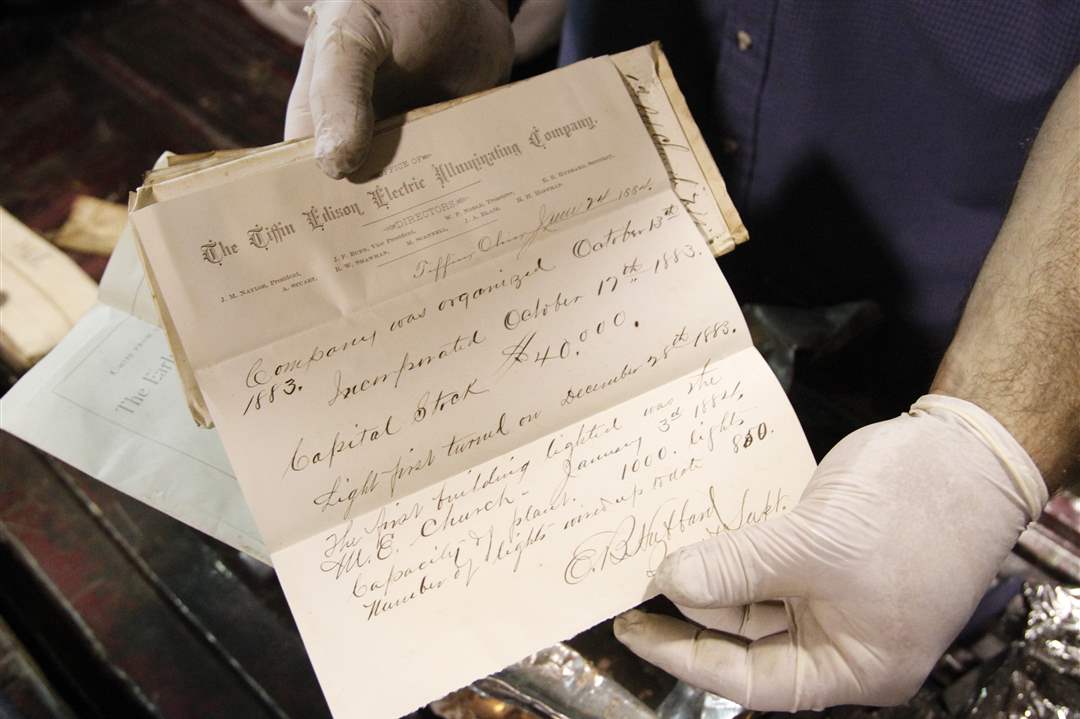 OFFICE OF
The Tiffin Edison Electric Illuminating Company.
DIRECTORS
J. M. NAYLOR, President, J. F. BUNN, Vice President, W. P. NOBLE, Treasurer, E. B. HUBBARD, Secretary,
A. STUART, R. W. SHAWHAN, H. SCANNELL, J. A. BLAIR, H. H. SHAWHAN
Tiffin, Ohio, June 24 1884.
Company was organized October 13th
1883. Incorporated October 17th 1883.
Capital Stock $40.000.
Light first turned on December 28th 1883.
The first building lighted was the
M. E. Church - January 3rd 1884.
Capacity of plant. 1000. lights
Number of lights wired up to date 850.
E. B. Hubbard Supt.
The Earl